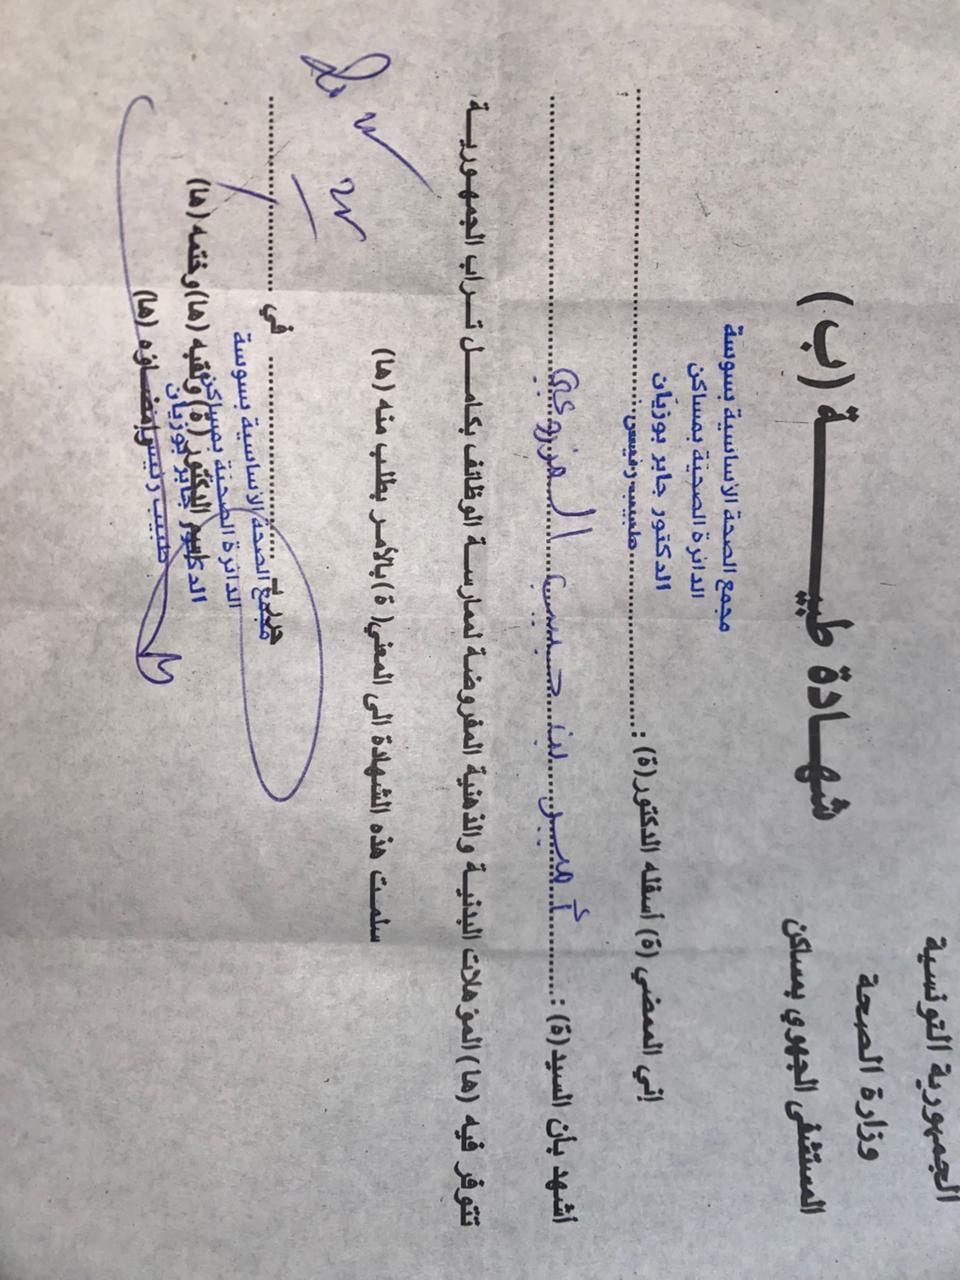 الجمهورية التونسية
وزارة الصحة
المستشفى الجهوي بمساكن
شهــادة طبيــــة (ب)
مجمع الصحة الأساسية بسوسة
الدائرة الصحية بمساكن
الدكتور جابر بوزيان
إني الممضي (ة) أسفله الدكتور(ة) : طبيب رئيس
أشهد بأن السيد(ة) : أميـر بن حبيب المزوغي
تتوفر فيه (ها) المؤهلات البدنية والذهنية المفروضة لممارسة الوظائف بكامل تراب الجمهورية
سلمت هذه الشهدة الى المعني(ة) بالأمر بطلب منه (ها)
حرر بـ ........ في ........
مجمع الصحة الأساسية بسوسة
الدائرة الصحية بمساكن
اسم الدكتور (ة) ولقبه (ها) وختمه (ها)
الدكتور جابر بوزيان
طبيب رئيس
وإمضاؤه (ها)